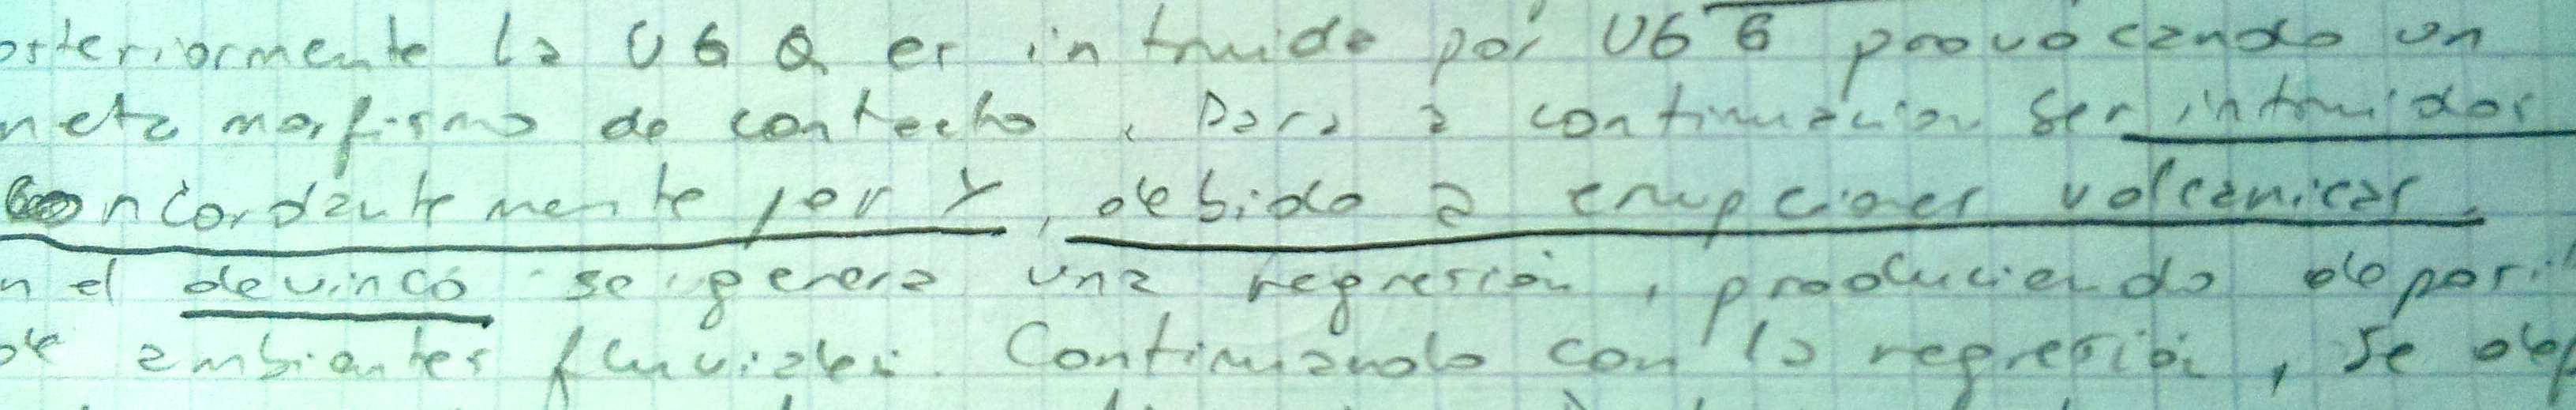 osteriormente la UG Q es intruida por UG 6 provocando un
metamorfismo de contacto, para a continuación ser intruidos
concordantemente por Y, debido a erupciones volcanicas.
n el devinco se genera una regresión, produciendo deposi
de ambientes fluviales. Continuando con la regresión, se dep